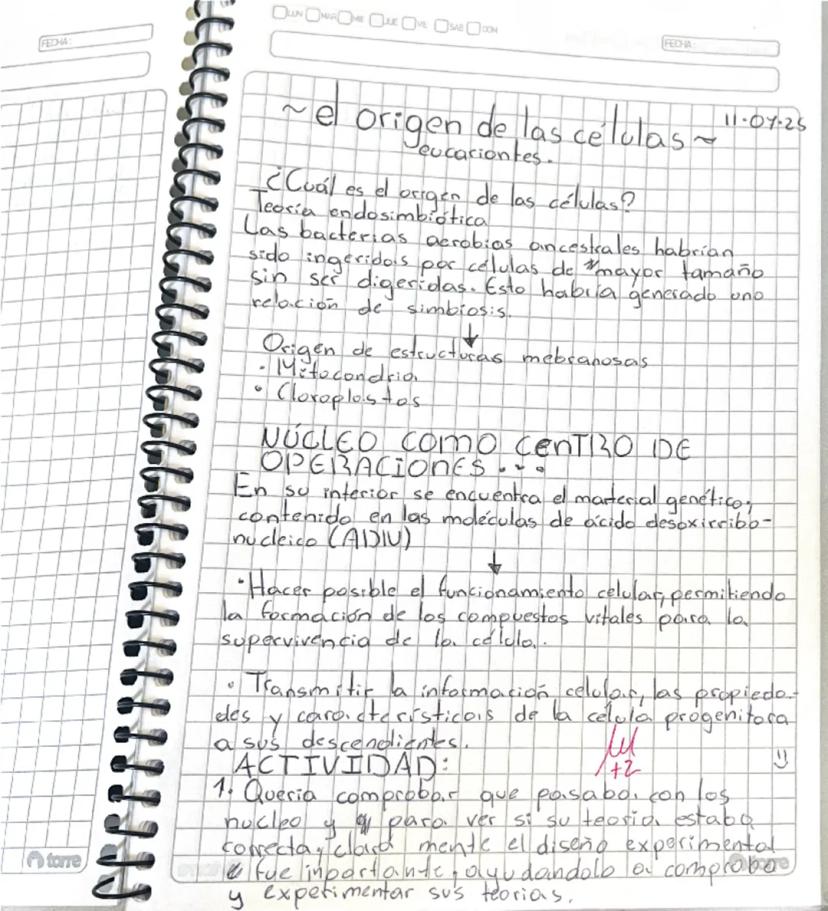 FECHA:
LUN MAR MIE JUE VIE SAB DOM
FECHA:
~el origen de las células~ 11-07-25
eucariontes.
¿Cuál es el origen de las células?
Teoría endosimbiótica
Las bacterias aerobias ancestrales habrían
sido ingeridas por células de mayor tamaño
sin ser digeridas. Esto habría generado una
relación de simbiosis.
Origen de estructuras mebranosas
• Mitocondria
• Cloroplastos
NÚCLEO COMO CENTRO DE
OPERACIONES...
En su interior se encuentra el material genético,
contenido en las moléculas de ácido desoxirribo-
nucleico (ADN)
• Hacer posible el funcionamiento celular, permitiendo
la formación de los compuestos vitales para la
supervivencia de la célula.
• Transmitir la información celular, las propieda-
des y características de la célula progenitora
a sus descendientes.
+2
ACTIVIDAD: :)
1. Queria comprobar que pasaba con los
nucleo y para ver si su teoria estaba
correcta, clara mente el diseño experimental
fue inportante, ayudandolo a comproba
y experimentar sus teorias.
torre
torre